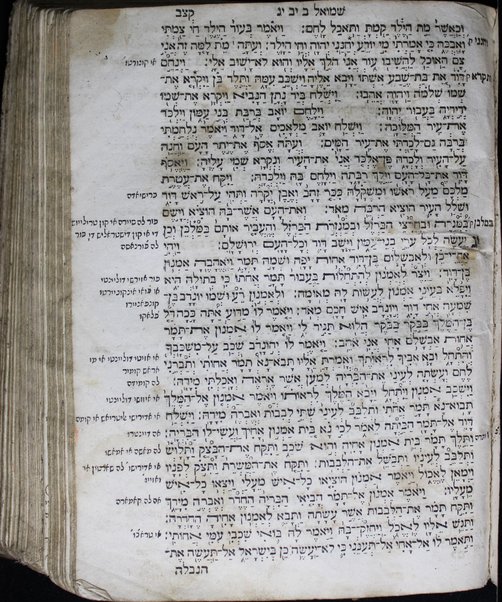 שמואל ב יב יג
קצב
וכאשר מת הילד קמת ותאכל לחם: ויאמר בעוד הילד חי צמתי
ואבכה כי אמרתי מי יודע יחנני יהוה וחי הילד: ועתה מת למה זה אני
צם האוכל להשיבו עוד אני הלך אליו והוא לא־ישוב אלי: וינחם
דוד את בת־שבע אשתו ויבא אליה וישכב עמה ותלד בן ויקרא את־
שמו שלמה ויהוה אהבו: וישלח ביד נתן הנביא ויקרא את־שמו
ידידיה בעבור יהוה: וילחם יואב ברבת בני עמון וילכד
את־עיר המלוכה: וישלח יואב מלאכים אל־דוד ויאמר נלחמתי
ברבה גם־לכדתי את־עיר המים: ועתה אסף את־יתר העם וחנה
על־העיר ולכדה פן־אלכד אני את־העיר ונקרא שמי עליה: ויאסף
דוד את־כל־העם וילך רבתה וילחם בה וילכדה: ויקח את־עטרת
מלכם מעל ראשו ומשקלה ככר זהב ואבן יקרה ותהי על־ראש דוד
ושלל העיר הוציא הרבה מאד: ואת־העם אשר־בה הוציא וישם
במגרה ובחרצי הברזל ובמגזרת הברזל והעביר אותם במלכן וכן
יעשה לכל ערי בני־עמון וישב דוד וכל־העם ירושלם: ויהי
אחרי־כן ולאבשלום בן־דוד אחות יפה ושמה תמר ויאהבה אמנון
בן־דוד: ויצר לאמנון להתחלות בעבור תמר אחתו כי בתולה היא
ויפלא בעיני אמנון לעשות לה מאומה: ולאמנון רע ושמו יונדב בן־
שמעה אחי דוד ויונדב איש חכם מאד: ויאמר לו מדוע אתה ככה דל
בן־המלך בבקר בבקר הלוא תגיד לי ויאמר לו אמנון את־תמר
אחות אבשלם אחי אני אהב: ויאמר לו יהונדב שכב על־משכבך
והתחל ובא אביך לראותך ואמרת אליו תבא נא תמר אחותי ותברני
לחם ועשתה לעיני את־הבריה למען אשר אראה ואכלתי מידה:
וישכב אמנון ויתחל ויבא המלך לראותו ויאמר אמנון אל־המלך
תבוא־נא תמר אחתי ותלבב לעיני שתי לבבות ואברה מידה: וישלח
דוד אל־תמר הביתה לאמר לכי נא בית אמנון אחיך ועשי־לו הבריה:
ותלך תמר בית אמנון אחיה והוא שכב ותקח את־הבצק ותלוש
ותלבב לעיניו ותבשל את־הלבבות: ותקח את־המשרת ותצק לפניו
וימאן לאכול ויאמר אמנון הוציאו כל־איש מעלי ויצאו כל־איש
מעליו: ויאמר אמנון אל־תמר הביאי הבריה החדר ואברה מידך
ותקח תמר את־הלבבות אשר עשתה ותבא לאמנון אחיה החדרה:
ותגש אליו לאכל ויחזק־בה ויאמר לה בואי שכבי עמי אחותי:
ותאמר לו אל־אחי אל־תענני כי לא־יעשה כן בישראל אל־תעשה את־
הנבלה